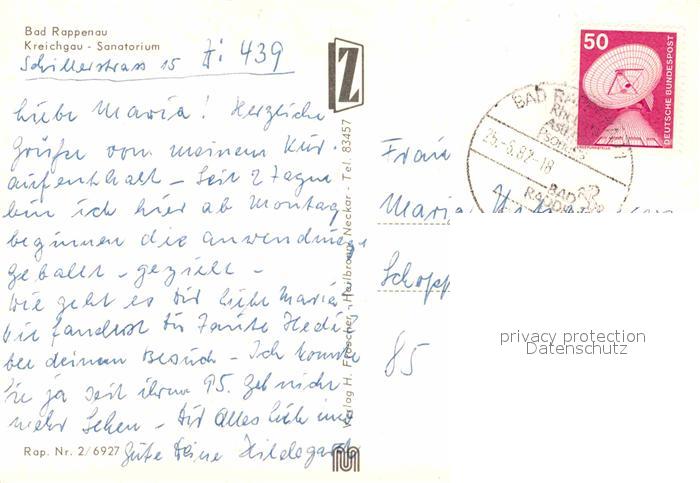 Bad Rappenau
Kreichgau - Sanatorium
Schillerstrass 15 Zi 439
Liebe Maria! Herzliche
Grüße von meinem Kur-
aufenthalt - Seit 2 Tagen
bin ich hier ab Montag
beginnen die Anwendungen
geballt - gezielt -
Wie geht es Dir liebe Maria
Wie fandest Du Tante Hedi
bei deinem Besuch - Ich konnte
Sie ja seit ihrem 95. Geb nicht
mehr sehen - Dir alles Liebe und
Gute Deine Hildegard
Rap. Nr. 2/6927
Z
Verlag H. Fröscher - Heilbronn/Neckar - Tel. 83457
50
DEUTSCHE BUNDESPOST
BAD
25.-6.82-18
BAD
Frau
Maria
Schopp
85
privacy protection
Datenschutz